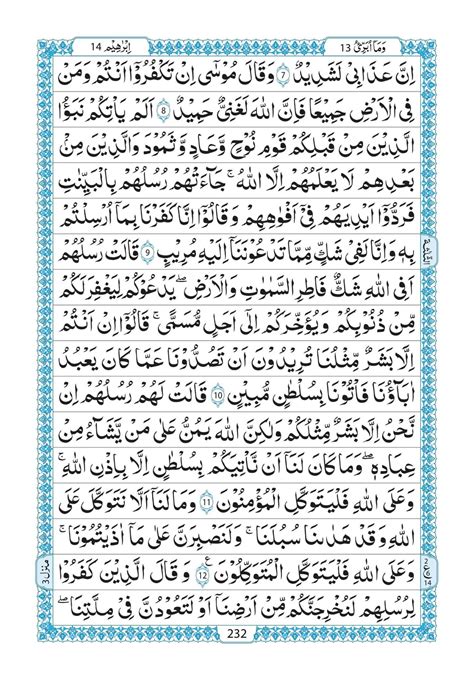 وَمَآ اُبَرِّئُ 13
اِبْرٰهِيْم 14
اِنَّ عَذَابِىْ لَشَدِيْدٌ ۝7 وَقَالَ مُوْسٰٓى اِنْ تَكْفُرُوْٓا اَنْتُمْ وَمَنْ
فِى الْاَرْضِ جَمِيْعًا فَاِنَّ اللّٰهَ لَغَنِىٌّ حَمِيْدٌ ۝8 اَلَمْ يَاْتِكُمْ نَبَؤُا
الَّذِيْنَ مِنْ قَبْلِكُمْ قَوْمِ نُوْحٍ وَّعَادٍ وَّثَمُوْدَ وَالَّذِيْنَ مِنْۢ
بَعْدِهِمْ لَا يَعْلَمُهُمْ اِلَّا اللّٰهُ ۚ جَآءَتْهُمْ رُسُلُهُمْ بِالْبَيِّنٰتِ
فَرَدُّوْٓا اَيْدِيَهُمْ فِىْٓ اَفْوَاهِهِمْ وَقَالُوْٓا اِنَّا كَفَرْنَا بِمَآ اُرْسِلْتُمْ
بِهٖ وَاِنَّا لَفِىْ شَكٍّ مِّمَّا تَدْعُوْنَنَآ اِلَيْهِ مُرِيْبٍ ۝9 قَالَتْ رُسُلُهُمْ
اَفِى اللّٰهِ شَكٌّ فَاطِرِ السَّمٰوٰتِ وَالْاَرْضِ ۖ يَدْعُوْكُمْ لِيَغْفِرَلَكُمْ
مِّنْ ذُنُوْبِكُمْ وَيُؤَخِّرَكُمْ اِلٰٓى اَجَلٍ مُّسَمًّى ۚ قَالُوْٓا اِنْ اَنْتُمْ
اِلَّا بَشَرٌ مِّثْلُنَا تُرِيْدُوْنَ اَنْ تَصُدُّوْنَا عَمَّا كَانَ يَعْبُدُ
اٰبَآؤُنَا فَاْتُوْنَا بِسُلْطٰنٍ مُّبِيْنٍ ۝10 قَالَتْ لَهُمْ رُسُلُهُمْ اِنْ
نَّحْنُ اِلَّا بَشَرٌ مِّثْلُكُمْ وَلٰكِنَّ اللّٰهَ يَمُنُّ عَلٰى مَنْ يَّشَآءُ مِنْ
عِبَادِهٖ ۖ وَمَا كَانَ لَنَآ اَنْ نَّاْتِيَكُمْ بِسُلْطٰنٍ اِلَّا بِاِذْنِ اللّٰهِ ۚ
وَعَلَى اللّٰهِ فَلْيَتَوَكَّلِ الْمُؤْمِنُوْنَ ۝11 وَمَالَنَآ اَلَّا نَتَوَكَّلَ عَلَى
اللّٰهِ وَقَدْ هَدٰىنَا سُبُلَنَا ۚ وَلَنَصْبِرَنَّ عَلٰى مَآ اٰذَيْتُمُوْنَا ۚ
وَعَلَى اللّٰهِ فَلْيَتَوَكَّلِ الْمُتَوَكِّلُوْنَ ۝12 ع وَقَالَ الَّذِيْنَ كَفَرُوْا
لِرُسُلِهِمْ لَنُخْرِجَنَّكُمْ مِّنْ اَرْضِنَآ اَوْ لَتَعُوْدُنَّ فِىْ مِلَّتِنَا ۖ
منزل 3
232